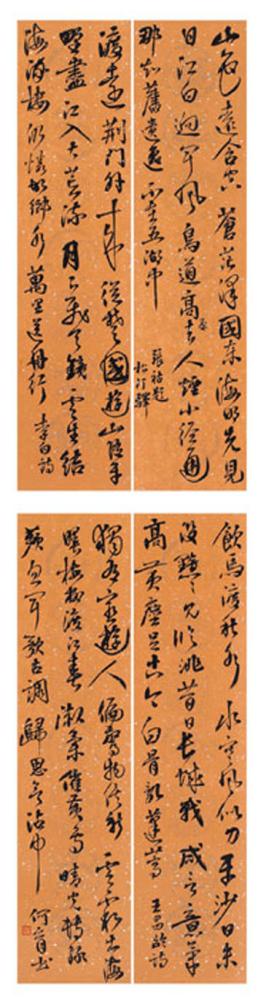 山色遠含空蒼茫澤國東海明先見
日江白迥聞風鳥道高原去人煙小徑通
那知舊遺逸不在五湖中
張祜題
松汀驛
渡遠荆門外來從楚國遊山隨平
野盡江入大荒流月下飛天鏡雲生結
海樓仍憐故鄉水萬里送舟行 李白詩
飲馬渡秋水水寒風似刀平沙日未
沒黯黯見臨洮昔日長城戰咸言意氣
高黃塵足古今白骨亂蓬蒿 王昌齡詩
獨有宦遊人偏驚物候新雲霞出海
曙梅柳渡江春淑氣催黃鳥晴光轉綠
蘋忽聞歌古調歸思欲沾巾 何 書